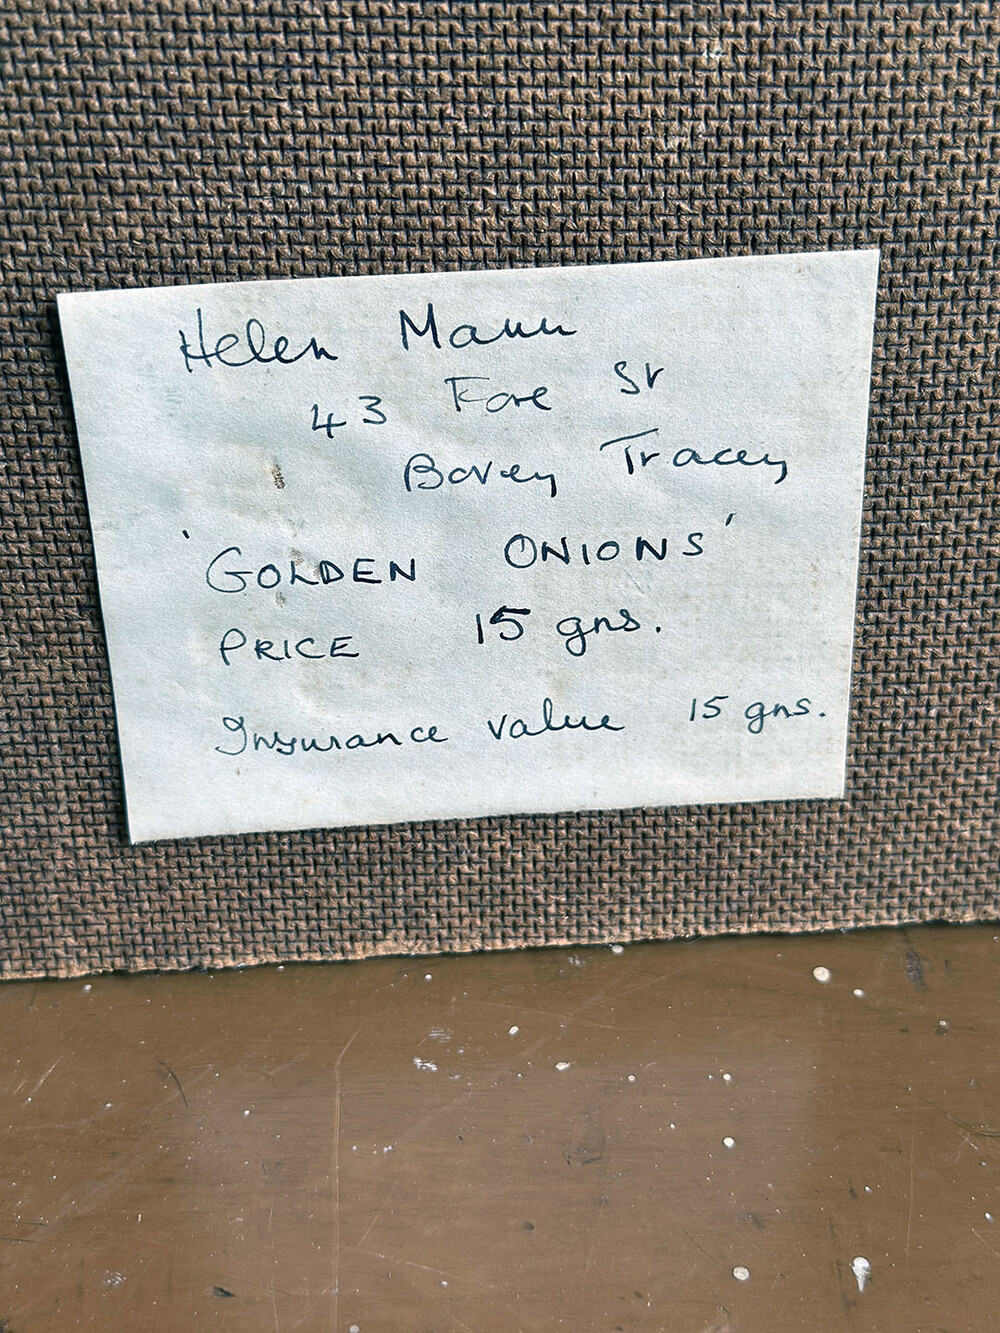 Helen Mann
43 Fore St
Bovey Tracey
'GOLDEN ONIONS'
PRICE 15 gns.
Insurance value 15 gns.